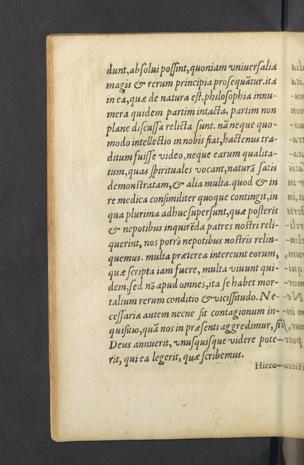 dunt, absolui possint, quoniam vniuersalia
magis & rerum principia prosequãtur. ita
in ea, quæ de natura est. philosophia innu-
mera quidem partim intacta, partim non
plane discussa relicta sunt. nã neque quo-
modo intellectio in nobis fiat, hactenus tra-
ditum fuisse video, neque earum qualita-
tum, quas spirituales vocant, naturã satis
demonstratam, & alia multa. quod & in
re medica consimiliter quoque contingit, in
qua plurima adhuc supersunt, quæ posteris
& nepotibus inquirẽda patres nostri reli-
querint, nos porrò nepotibus nostris relin-
quemus. multa præterea intercunt eorum,
quæ scripta iam fuere, multa viuunt qui-
dem, sed nõ apud omnes, ita se habet mor-
talium rerum conditio & vicissitudo. Ne-
cessaria autem necne sit contagionum in-
quisitio, quã nos in præsenti aggredimur, si
Deus annuerit, vnusquisque videre pote-
rit, qui ea legerit, quæ scribemus.
Hiero-